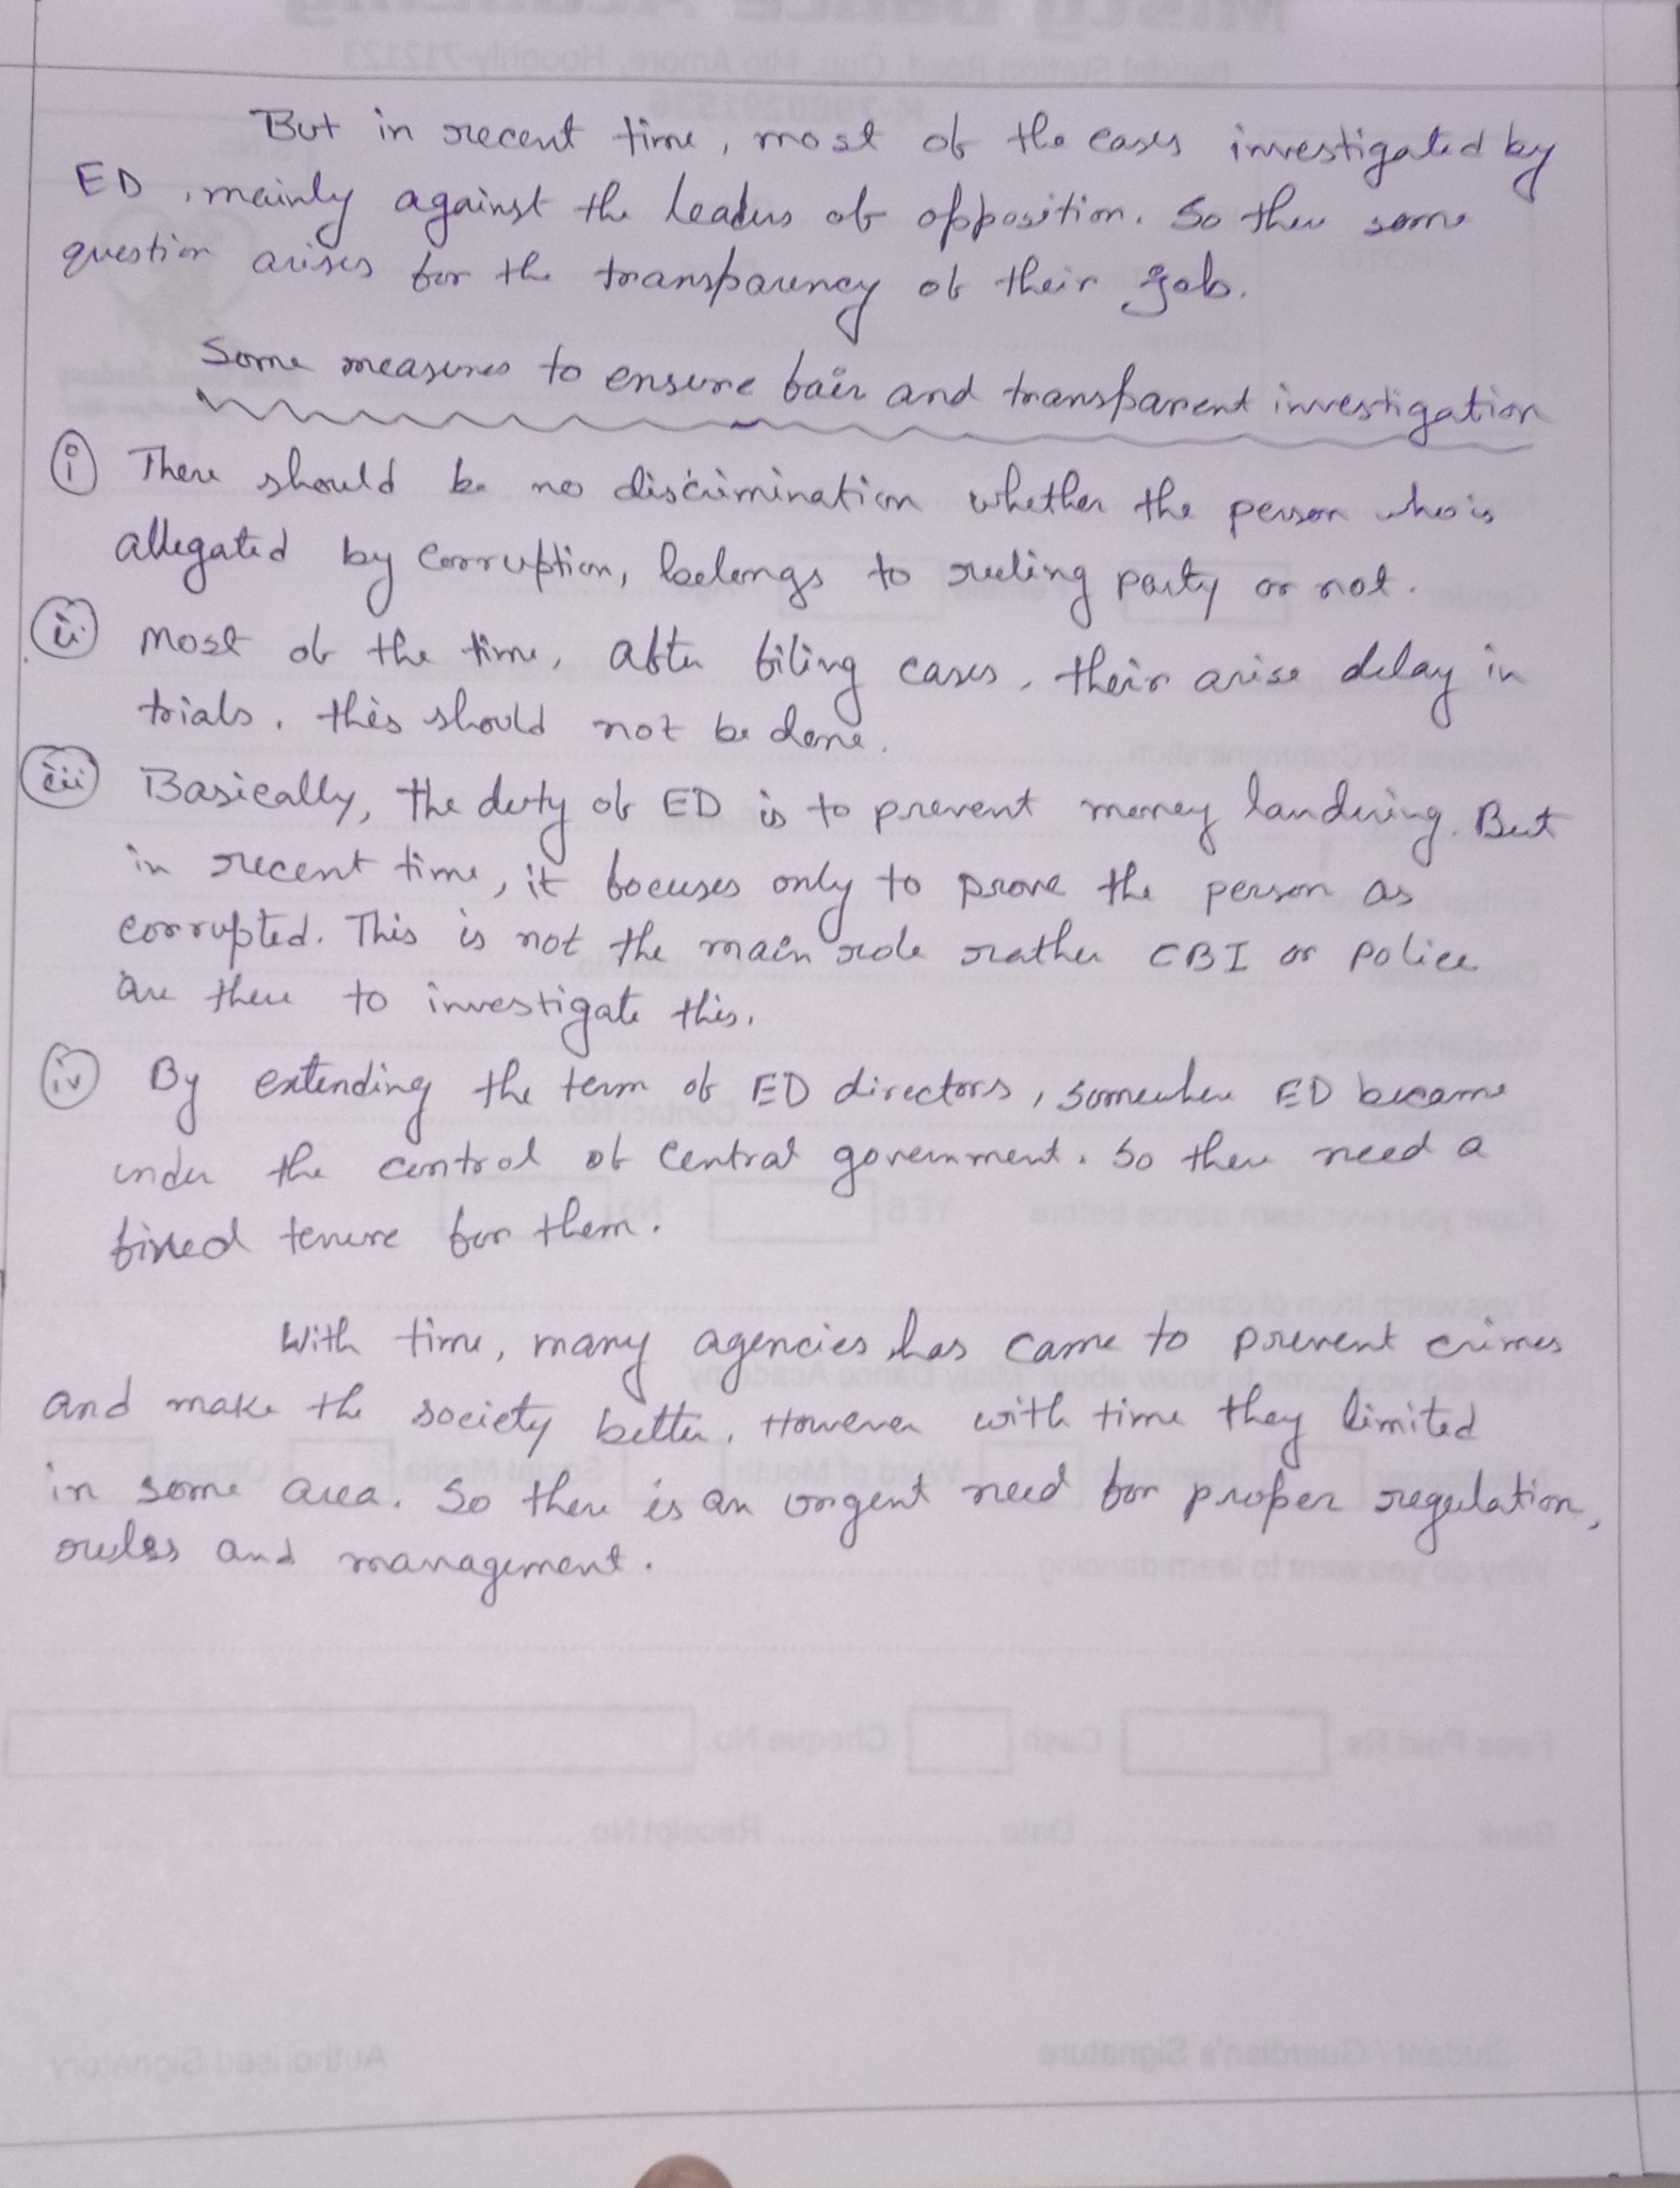 But in recent time, most of the cases investigated by
ED, mainly against the leaders of opposition. So there some
question arises for the transparency of their job.
Some measures to ensure fair and transparent investigation
(i) There should be no discrimination whether the person who is
allegated by corruption, belongs to ruling party or not.
(ii) Most of the time, after filing cases, their arise delay in
trials, this should not be done.
(iii) Basically, the duty of ED is to prevent money landering. But
in recent time, it focuses only to prove the person as
corrupted. This is not the main role rather CBI or police
are there to investigate this.
(iv) By extending the term of ED directors, somewhere ED became
under the control of Central government. So there need a
fixed tenure for them.
With time, many agencies has came to prevent crimes
and make the society better. However with time they limited
in some area. So there is an urgent need for proper regulation,
rules and management.